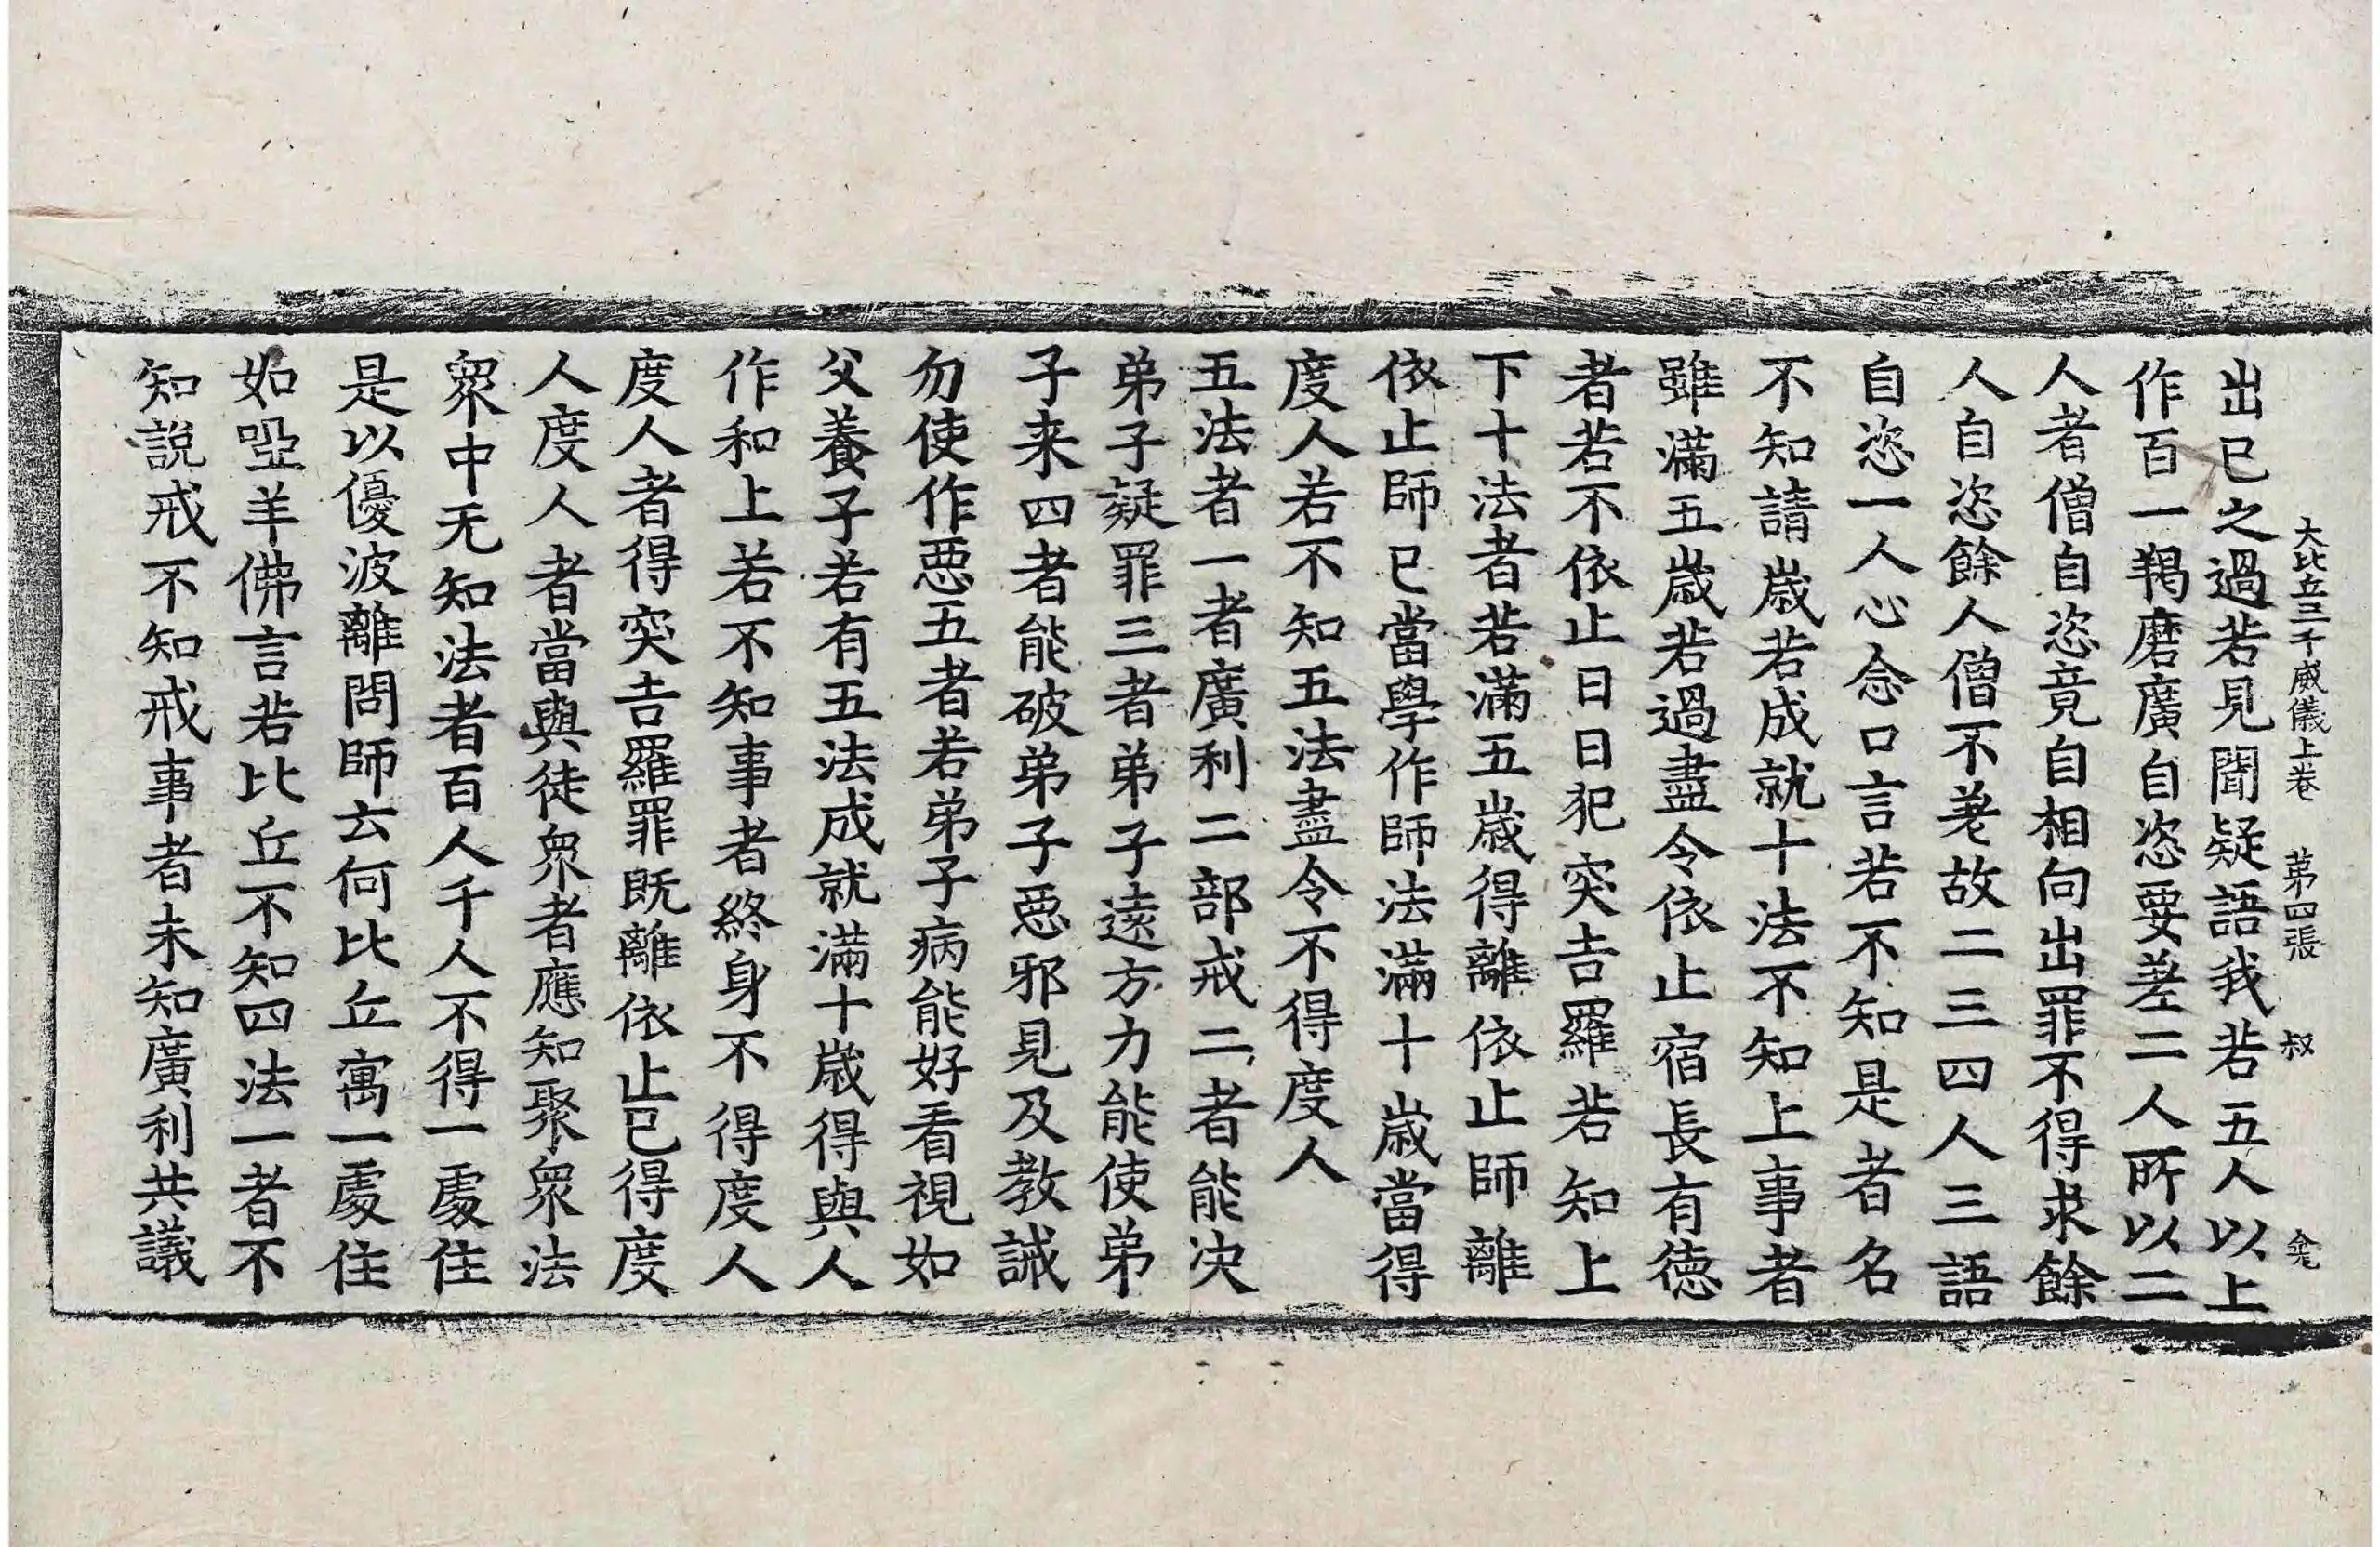 大比丘三千威儀上卷 苐四張 叔
出已之過若見聞疑語我若五人以上
作百一羯磨廣自恣要差二人所以二
人者僧自恣竟自相向出罪不得求餘
人自恣餘人僧不差故二三四人三語
自恣一人心念口言若不知是者名
不知請歳若成就十法不知上事者
雖滿五歳若過盡令依止宿長有德
者若不依止日日犯突吉羅若知上
下十法者若滿五歳得離依止師離
依止師已當學作師法滿十歳當得
度人若不知五法盡令不得度人
五法者一者廣利二部戒二者能决
弟子疑罪三者弟子遠方力能使弟
子来四者能破弟子惡邪見及教誡
勿使作惡五者若弟子病能好看視如
父養子若有五法成就滿十歳得與人
作和上若不知事者終身不得度人
度人者得突吉羅罪既離依止已得度
人度人者當與徒衆者應知聚衆法
衆中无知法者百人千人不得一處住
是以優波離問師云何比丘寓一處住
如啞羊佛言若比丘不知四法一者不
知說戒不知戒事者未知廣利共議